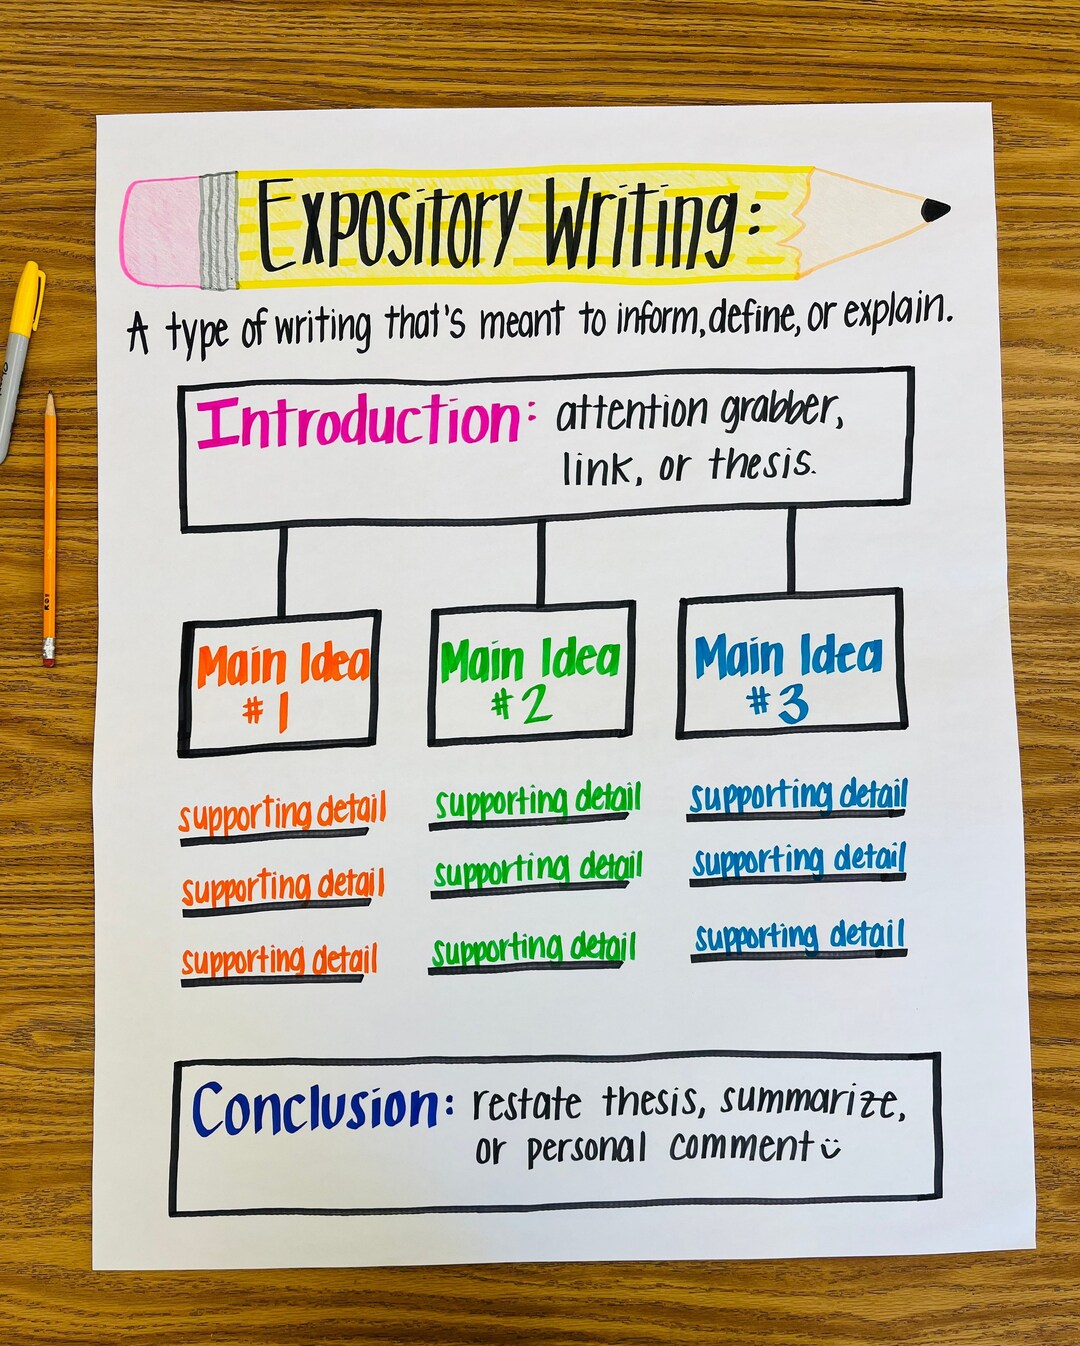 Expository Writing:
A type of writing that's meant to inform, define, or explain.
Introduction: attention grabber,
link, or thesis.
Main Idea
#1
Main Idea
#2
Main Idea
#3
supporting detail
supporting detail
supporting detail
supporting detail
supporting detail
supporting detail
supporting detail
supporting detail
supporting detail
Conclusion: restate thesis, summarize,
or personal comment